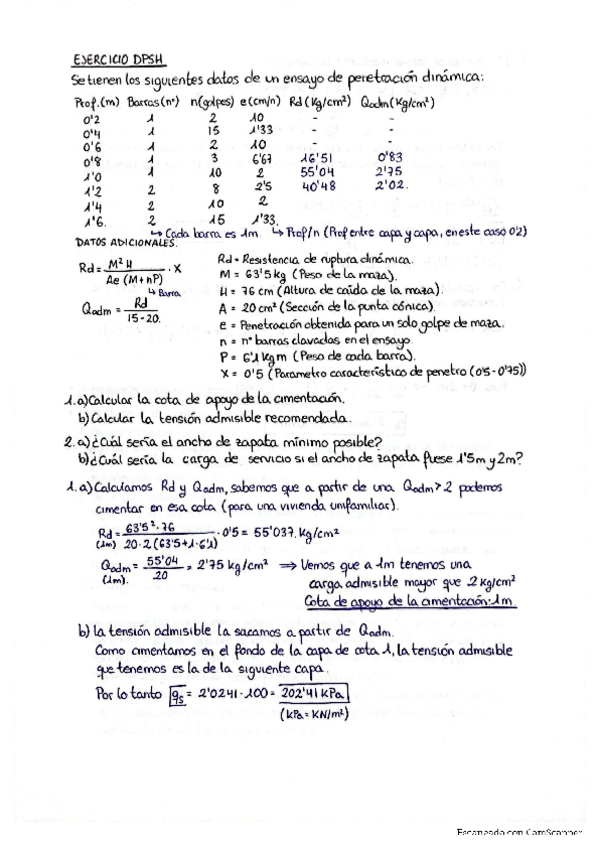 EJERCICIO DPSH
Se tienen los siguientes datos de un ensayo de penetración dinámica:
Prof.(m) Barras(nº) n(golpes) e(cm/n) Rd(Kg/cm²) Qadm(Kg/cm²)
0'2 1 2 10 - -
0'4 1 15 1'33 - -
0'6 1 2 10 - -
0'8 1 3 6'67 16'51 0'83
1'0 1 10 2 55'04 2'75
1'2 2 8 2'5 40'48 2'02.
1'4 2 10 2
1'6. 2 15 1'33.
↳ Cada barra es 1m. ↳ Prof/n (Prof entre capa y capa, en este caso 0'2)
DATOS ADICIONALES.
Rd = M² H / Ae (M+nP) · X
↳ Barra
Qadm = Rd / 15-20.
Rd = Resistencia de ruptura dinámica.
M = 63'5 kg (Peso de la maza).
H = 76 cm (Altura de caída de la maza).
A = 20 cm² (Sección de la punta cónica).
e = Penetración obtenida para un solo golpe de maza.
n = nº barras clavadas en el ensayo.
P = 6'1 Kg m (Peso de cada barra).
X = 0'5 (Parametro característico de penetro (0'5-0'75))
1. a) Calcular la cota de apoyo de la cimentación.
b) Calcular la tensión admisible recomendada.
2. a) ¿Cuál sería el ancho de zapata mínimo posible?
b) ¿Cuál sería la carga de servicio si el ancho de zapata fuese 1'5m y 2m?
1. a) Calculamos Rd y Qadm, sabemos que a partir de una Qadm > 2 podemos
cimentar en esa cota (para una vivienda unifamiliar).
Rd = 63'5² · 76 / 20 · 2 (63'5 + 1 · 6'1) · 0'5 = 55'037. Kg/cm²
(1m)
Qadm = 55'04 / 20 = 2'75 kg/cm² ⟹ Vemos que a 1m tenemos una
(1m). carga admisible mayor que 2 kg/cm²
Cota de apoyo de la cimentación: 1m.
b) la tensión admisible la sacamos a partir de Qadm.
Como cimentamos en el fondo de la capa de cota 1, la tensión admisible
que tenemos es la de la siguiente capa.
Por lo tanto qs = 2'0241 · 100 = 202'41 kPa
(kPa = KN/m²)
Escaneado con CamScanner